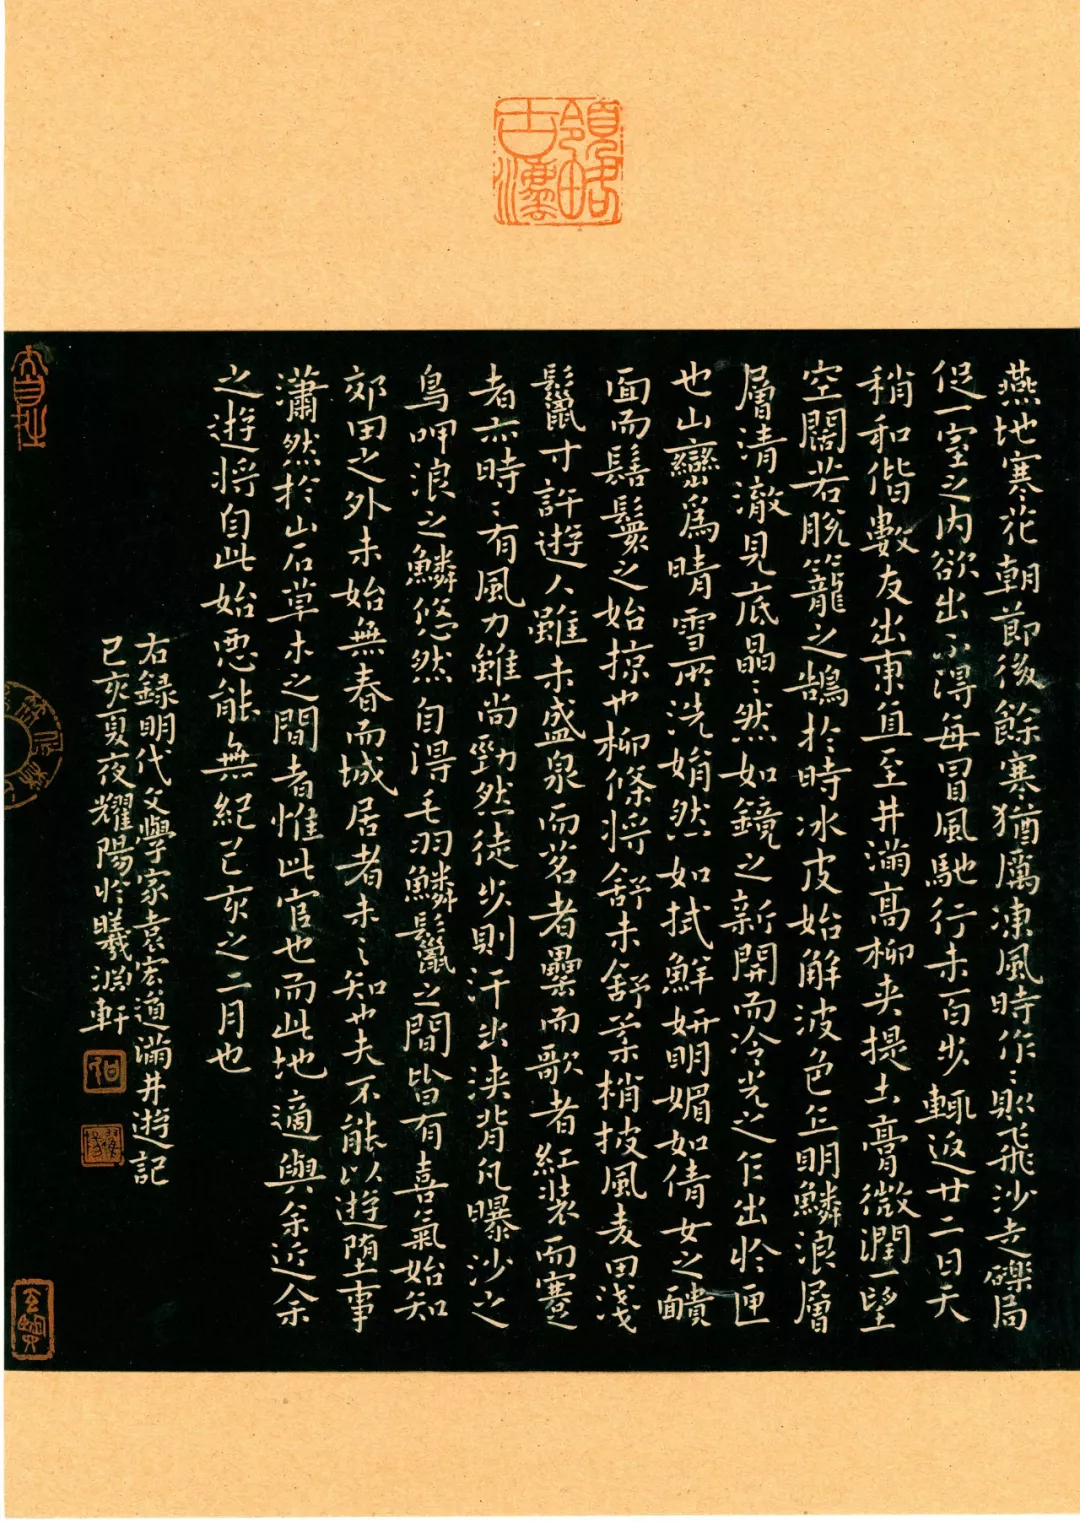 領略古法
燕地寒花朝節後餘寒猶厲凍風時作:則飛沙走礫局
促一室之内欲出不得每冒風馳行未百步輒返廿二日天
稍和偕數友出東直至井滿高柳夾提土膏微潤一望
空闊若脫籠之鵠於時冰皮始解波色乍明鱗浪層
層清澈見底晶:然如鏡之新開而冷光之乍出於匣
也山巒爲晴雪所洗娟然如拭鮮妍明媚如倩女之靧
面而髻鬟之始掠也柳條將舒未舒柔梢披風麦田淺
鬣寸許遊人雖未盛泉而茗者罍而歌者紅裝而蹇
者亦時:有風力雖尚勁然徒步則汗出浹背凡曝沙之
鳥呷浪之鱗悠然自得毛羽鱗鬣之間皆有喜氣始知
郊田之外未始無春而城居者未之知也夫不能以遊堕事
瀟然於山石草木之間者惟此官也而此地適與余近余
之遊將自此始惡能無紀己亥之二月也
右録明代文學家袁宏道滿井遊記
己亥夏夜耀陽於曦淵軒